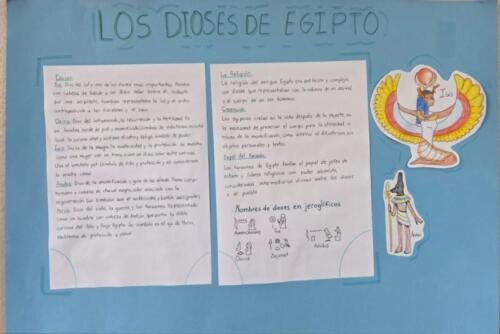 LOS DIOSES DE EGIPTO
Dioses:
Ra: Dios del sol y uno de los dioses más importantes. Hombre
con cabeza de halcón y un disco solar sobre él, rodeado
por una serpiente, también representaba la luz y el orden
contraposición a las tinieblas y el caos.
Osiris: Dios del inframundo, la resurrección y la fertilidad. Es
un hombre verde de piel y momificado
lleva la corona atef y sostiene el callado y látigo, símbolo de poder
Isis: Diosa de la magia, la maternidad y la protección se muestra
como una mujer con un trono o con un disco solar entre cuernos.
Usa el amuleto símbolo de vida y protección y es considerada
la madre ideal
Anubis: Dios de la momificación y guía de las almas. Tiene cuerpo
humano y cabeza de chacal negro, color asociado con
la regeneración. Sus símbolos son el
Horus: Dios del cielo, la guerra y los faraones. Representado
como un hombre con cabeza de halcón que porta la doble
corona del Alto y Bajo Egipto. Su símbolo es el ojo de Horus,
emblema de protección y salud
La Religión:
La religión del antiguo Egipto era politeísta y compleja,
con dioses que representaban con la cabeza de un animal
y el cuerpo de un ser humano.
Creencias:
Los egipcios creían en la vida después de la muerte, su
la necesidad de preservar el cuerpo para la eternidad a
través de la momificación, como enterrar al difunto con sus
objetos personales y textos.
Papel del Faraón:
Los faraones de Egipto tenían el papel de jefes de
estado y líderes religiosos con poder absoluto,
considerados intermediarios divinos entre los dioses
y el pueblo
Nombres de dioses en jeroglíficos
Ra
Anubis
Osiris
Sejmet
Isis